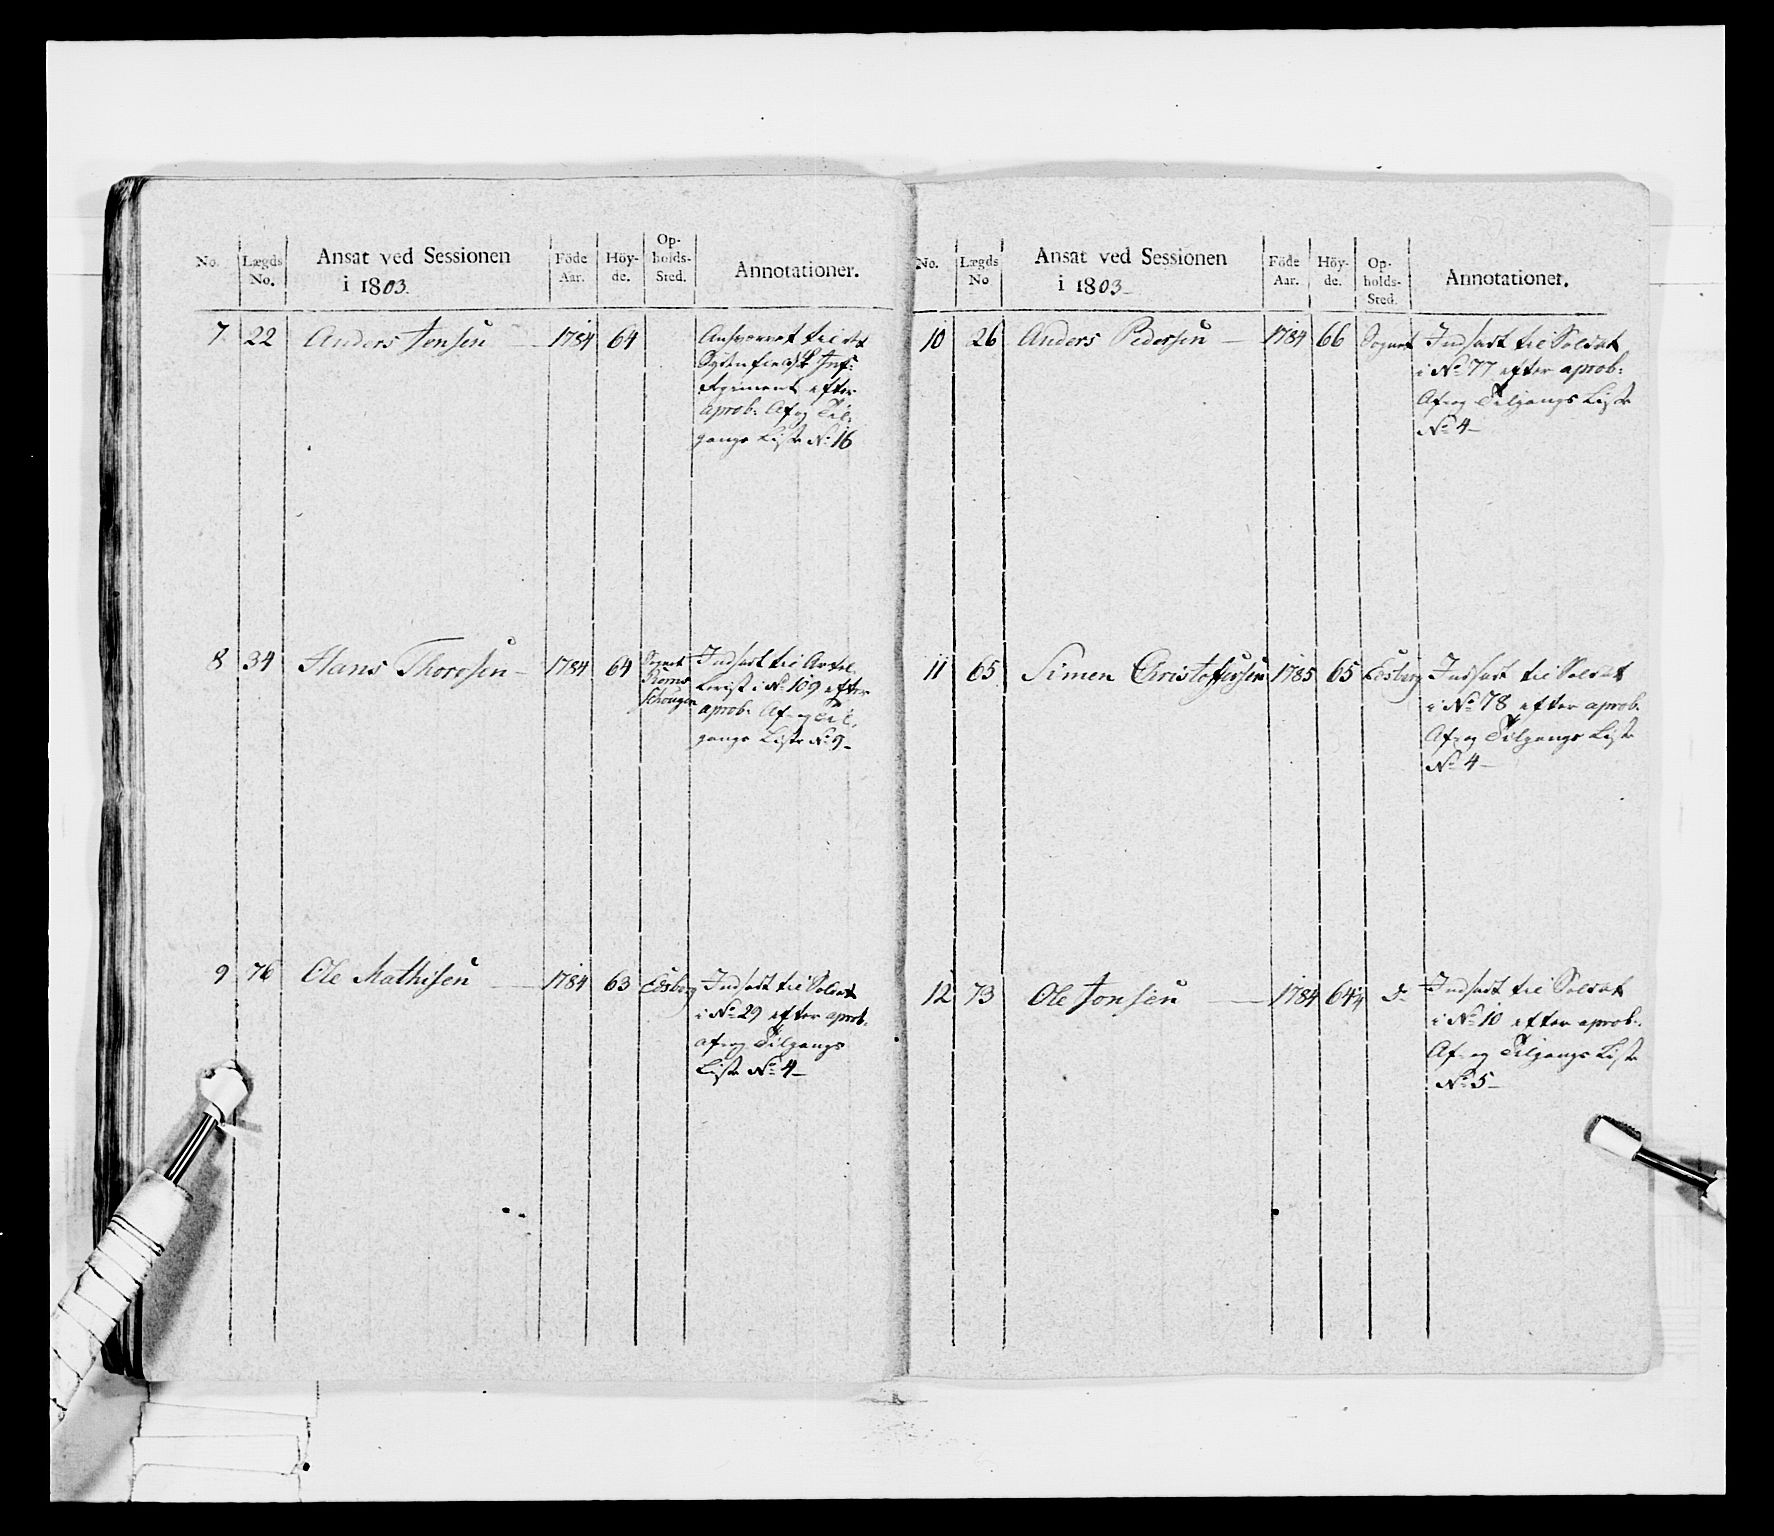 No. Lægds No. Ansat ved Sessionen i 1803. Föde Aar. Höy-de. Op-holds-Sted. Annotationer.
7 22 Anders Jonsen 1784 64 Ansværvet til det
Sydenfieldsk Inf:
Regiment efter
aprob: Af og Til-
gangs Liste No 16
8 34 Hans Thoresen - 1784 64 Sognet Indsat til Artel
lerist i No 109 efter
aprob: Af og Til-
gangs Liste No 9-
9 76 Ole Mathisen 1784 63 Edsberg Indsat til Soldat
i No 29 efter aprob:
af og Tilgangs
Liste No 4-
No. Lægds No Ansat ved Sessionen i 1803- Föde Aar. Höy-de. Op-holds-Sted. Annotationer.
10 26 Anders Pedersen - 1784 66 Sognet Indsat til Soldat
i No 77 efter aprob:
Af og Tilgangs Liste
No 4-
11 65 Simen Christophersen 1785 65 Edsberg Indsat til Soldat
i No 78 efter aprob:
Af og Tilgangs Liste
No 4-
12 73 Ole Jonsen 1784 64 1/4 Do Indsat til Soldat
i No 10 efter aprob:
Af og Tilgangs Liste
No 5-